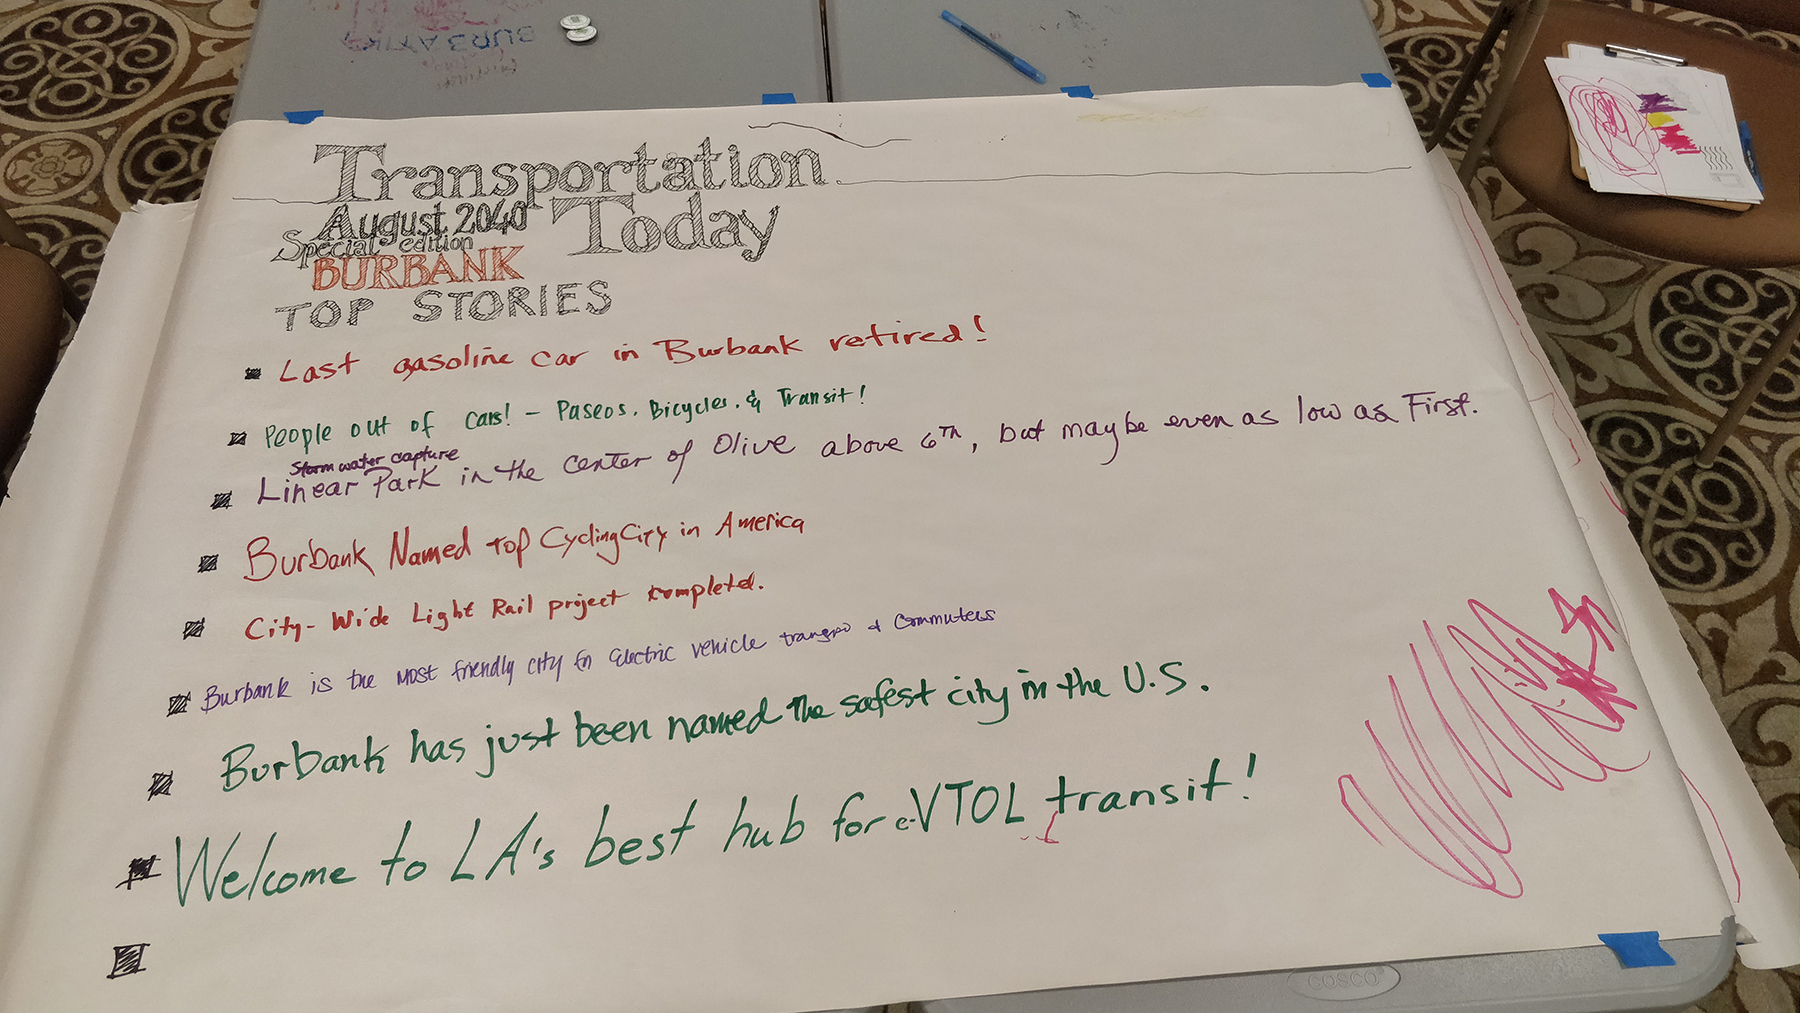 BURBANK
Transportation
Today
August 2040
Special edition
BURBANK
TOP STORIES
Last gasoline car in Burbank retired!
People out of cars! - Paseos, Bicycles, & Transit!
Storm water capture
Linear Park in the center of Olive above 6th, but maybe even as low as First.
Burbank Named top Cycling City in America
City-Wide Light Rail project completed.
Burbank is the most friendly city fn Electric vehicle transpo & commuters
Burbank has just been named the safest city in the U.S.
Welcome to LA's best hub for e-VTOL transit!
COSCO